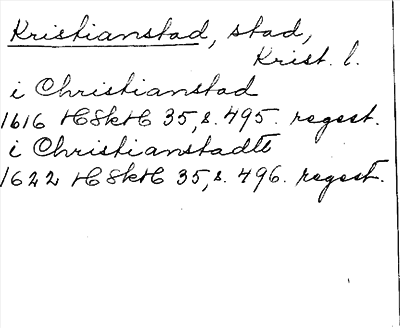 Kristianstad, stad,
Krist. l.
i Christianstad
1616 HSkH 35, s. 495. regest.
i Christianstadtt
1622 HSkH 35, s. 496. regest.